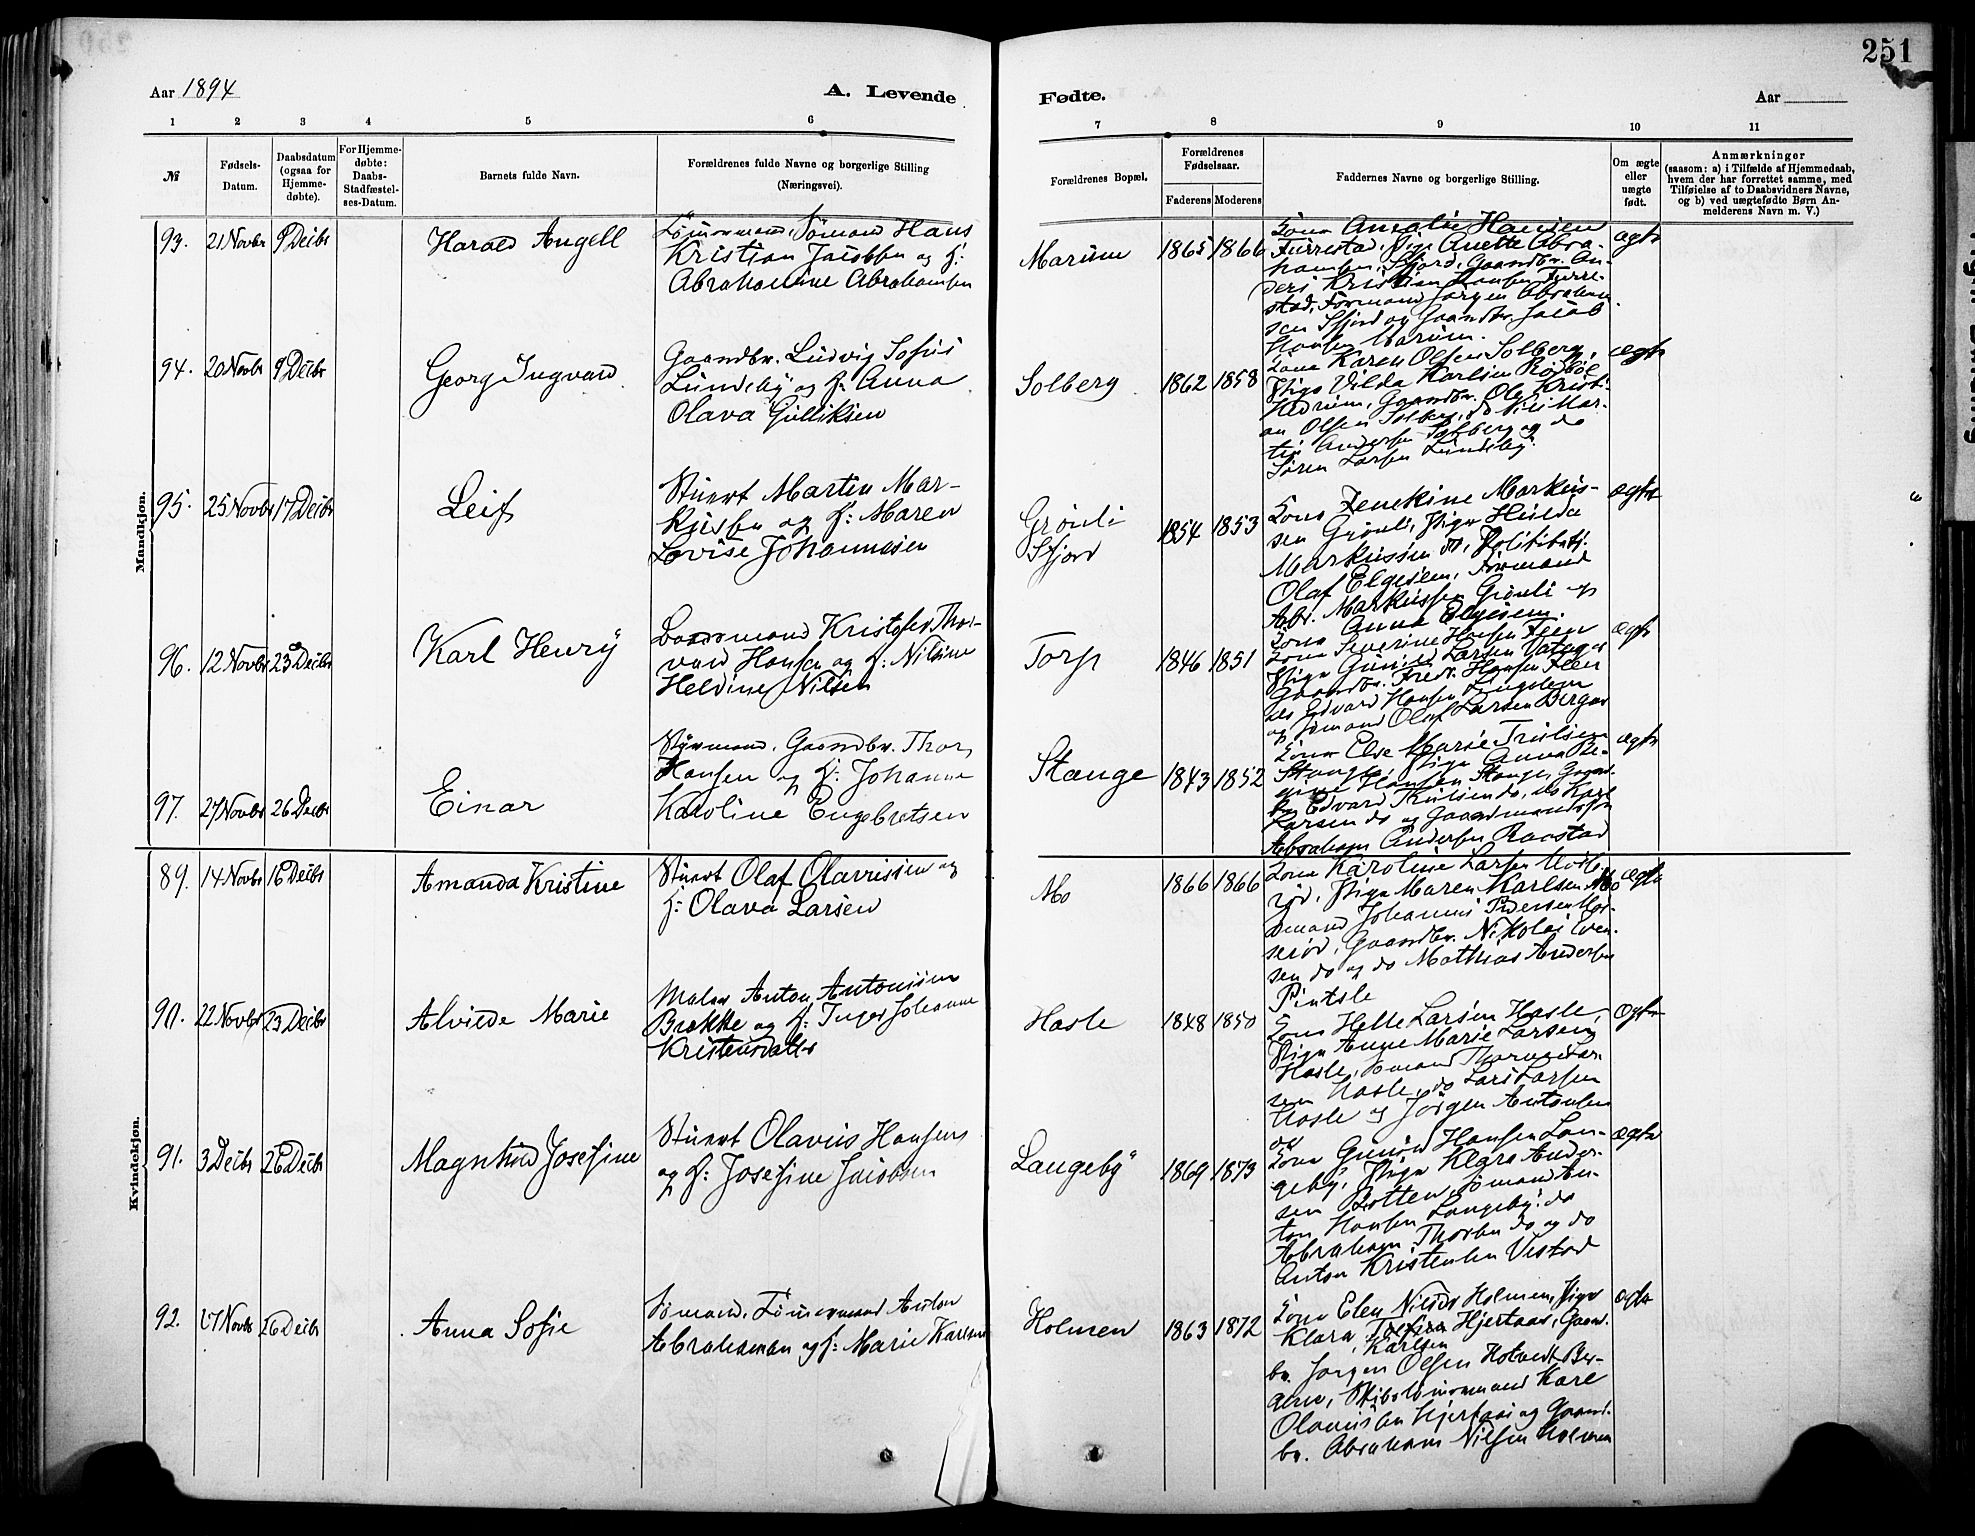 251
Aar 1894
A. Levende
Fødte.
Aar
1 2 3 4 5 6 7 8 9 10 11
№
Fødsels-
Datum.
Daabsdatum
(ogsaa for
Hjemme-
døbte).
For Hjemme-
døbte:
Daabs-
Stadfæstel-
ses-Datum.
Barnets fulde Navn.
Forældrenes fulde Navne og borgerlige Stilling
(Næringsvei).
Forældrenes Bopæl.
Forældrenes
Fødselsaar.
Faderens Moderens
Faddernes Navne og borgerlige Stilling.
Om ægte
eller
uægte
født.
Anmærkninger
(saasom: a) i Tilfælde af Hjemmedaab,
hvem der har forrettet samme, med
Tilføielse af to Daabsvidners Navne,
og b) ved uægtefødte Børn An-
melderens Navn m. V.)
Mandkjøn.
93. 21 Novbr 9 Decbr
Harald Angell
Tømmermand, Sømand Hans
Kristian Jacobsen og h:
Abrahamine Abrahamsen
Marum
1865 1866
Kona Amalie Hansen
Furrestad, Pige Anette Abra-
hamsen, Sfjord, Gaardbr. An-
ders Kristian Hansen Furre-
stad, Formand Jørgen Abraham
sen Sfjord og Gaardbr. Jacob
Hansen Marum.
ægte
94. 20 Novbr 9 Decbr
Georg Ingvard
Gaardbr. Ludvig Sofus
Lundeby og h: Anna
Olava Gulliksen
Solberg
1862 1858
Kona Karen Olsen Solberg,
Pige Vilda Karlsen
Hedrum, Gaardbr. Ole Kristi-
an Olsen Solberg, do Nils Mar-
tin Andersen Solberg og do
Søren Larsen Lundeby.
ægte
95. 25 Novbr 17 Decbr
Leif
Stuert Martin Mar-
kussen og h: Maren
Lovise Johannesen
Grønli
Sfjord
1854 1853
Kona Markus-
sen Grønli, Pige Hulda
Markussen do,
Olaf Elgesem, Formand
Abr. Markussen Grønli og
Kona Anna Elgesem.
ægte
96. 12 Novbr 23 Decbr
Karl Henry
Kristofer Thor-
vald Hansen og h: Nilsine
Heldine Nilsen
Torp
1846 1851
Kona Severine Hansen Feen
Pige Gunild Larsen
Gaardbr. Fredr. Hansen Feen
do Edvard Hansen
og Sømand Olaf Larsen Bergan
ægte
97. 27 Novbr 26 Decbr
Einar
Styrmand, Gaardbr. Thor
Hansen og h: Johanne
Karoline Engebretsen
Stange
1843 1852
Kona Else Marie
Stange, Pige Anna Re-
gine Hansen Stange, Gaard-
br. Edvard do, do Karl
Larsen do og Gaardmandssøn
Abraham Andersen Raastad
ægte
Kvindekjøn.
89. 14 Novbr 16 Decbr
Amanda Kristine
Stuert Olaf Olavussen og
h: Olava Larsen
Mo
1866 1866
Kona Karoline Larsen
rød, Pige Maren Karlsen Mo
Sømand Johannes Pedersen Mos-
serød, Gaardbr. Nikolai Iver-
sen do og do Mathias Andersen
Pintsle
ægte
90. 22 Novbr 23 Decbr
Alvilde Marie
Maler Anton Antonisen
Brække og h: Inger Johanne
Kristensdatter
Hasle
1848 1850
Kona Helle Larsen Hasle,
Pige Anne Marie Larsen
Hasle, Sømand Lar-
sen Hasle, do Lars Larsen
Hasle og Jørgen Antonsen
do
ægte
91. 3 Decbr 26 Decbr
Magnhild Josefine
Stuert Olavus Hansen
og h: Josefine Jacobsen
Langeby
1869 1873
Kona Gurod Hansen Lan-
geby, Pige Klara Ander-
sen Sømand An-
ton Hansen Langeby, do
Abraham Thorsen do og do
Anton Kristensen Vestad
ægte
92. 27 Novbr 26 Decbr
Anna Sofie
Sømand, Tømmermand Anton
Abrahamsen og h: Marie Karlsen
Holmen
1863 1872
Kona Elen Nilsen Holmen, Pige
Klara Hjertaas, Gaard-
Karlsen
br. Jørgen Olsen Hotvedt Ber-
gan, Skibstømmermand Karl
Olavussen Hjertaas og Gaard-
br. Abraham Nilsen Holmen
ægte